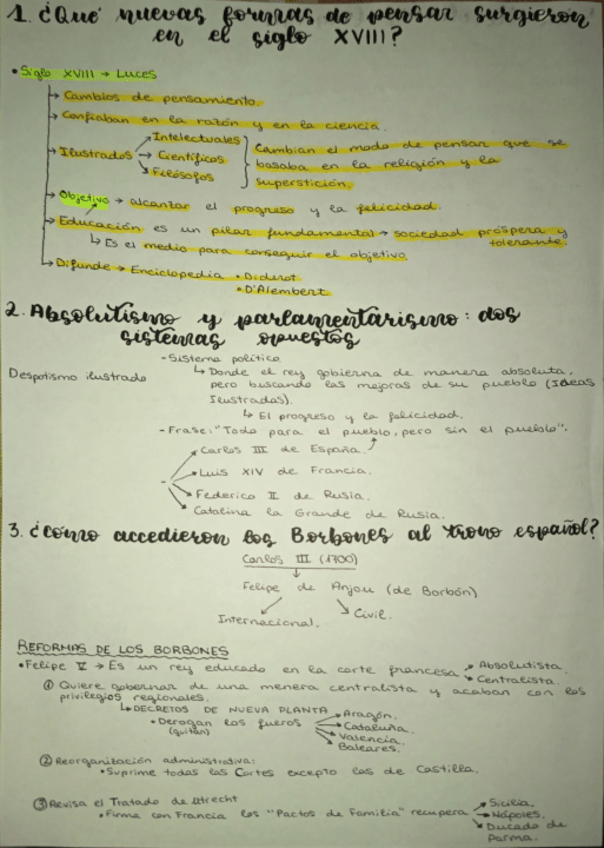 1. ¿Qué nuevas formas de pensar surgieron
en el siglo XVIII?
• Siglo XVIII → Luces
→ Cambios de pensamiento.
→ Confiaban en la razón y en la ciencia.
→ Ilustrados → Intelectuales
→ Científicos
→ Filósofos
Cambian el modo de pensar que se
basaba en la religión y la
superstición.
→ Objetivo → alcanzar el progreso y la felicidad.
→ Educación es un pilar fundamental → sociedad próspera y
tolerante.
↳ Es el medio para conseguir el objetivo.
→ Difunde → Enciclopedia • Diderot
• D'Alembert
2. Absolutismo y parlamentarismo: dos
sistemas opuestos
Despotismo ilustrado
- Sistema político
↳ Donde el rey gobierna de manera absoluta,
pero buscando las mejoras de su pueblo (Ideas
Ilustradas).
↳ El progreso y la felicidad.
- Frase: "Todo para el pueblo, pero sin el pueblo".
- → Carlos III de España.
→ Luis XIV de Francia.
→ Federico II de Rusia.
→ Catalina la Grande de Rusia.
3. ¿cómo accedieron los Borbones al trono español?
Carlos III (1700)
↓
Felipe de Anjou (de Borbón)
Internacional.
Civil.
REFORMAS DE LOS BORBONES
• Felipe V → Es un rey educado en la corte francesa → Absolutista.
→ Centralista.
① Quiere gobernar de una menera centralista y acaban con los
privilegios regionales.
↳ DECRETOS DE NUEVA PLANTA
• Derogan los fueros → Aragón.
(quitan) → Cataluña.
→ Valencia.
→ Baleares.
② Reorganización administrativa:
• Suprime todas las Cortes excepto las de Castilla.
③ Revisa el Tratado de Utrecht
• Firma con Francia los "Pactos de Familia" recupera → Sicilia.
→ Nápoles.
→ Ducado de
Parma.